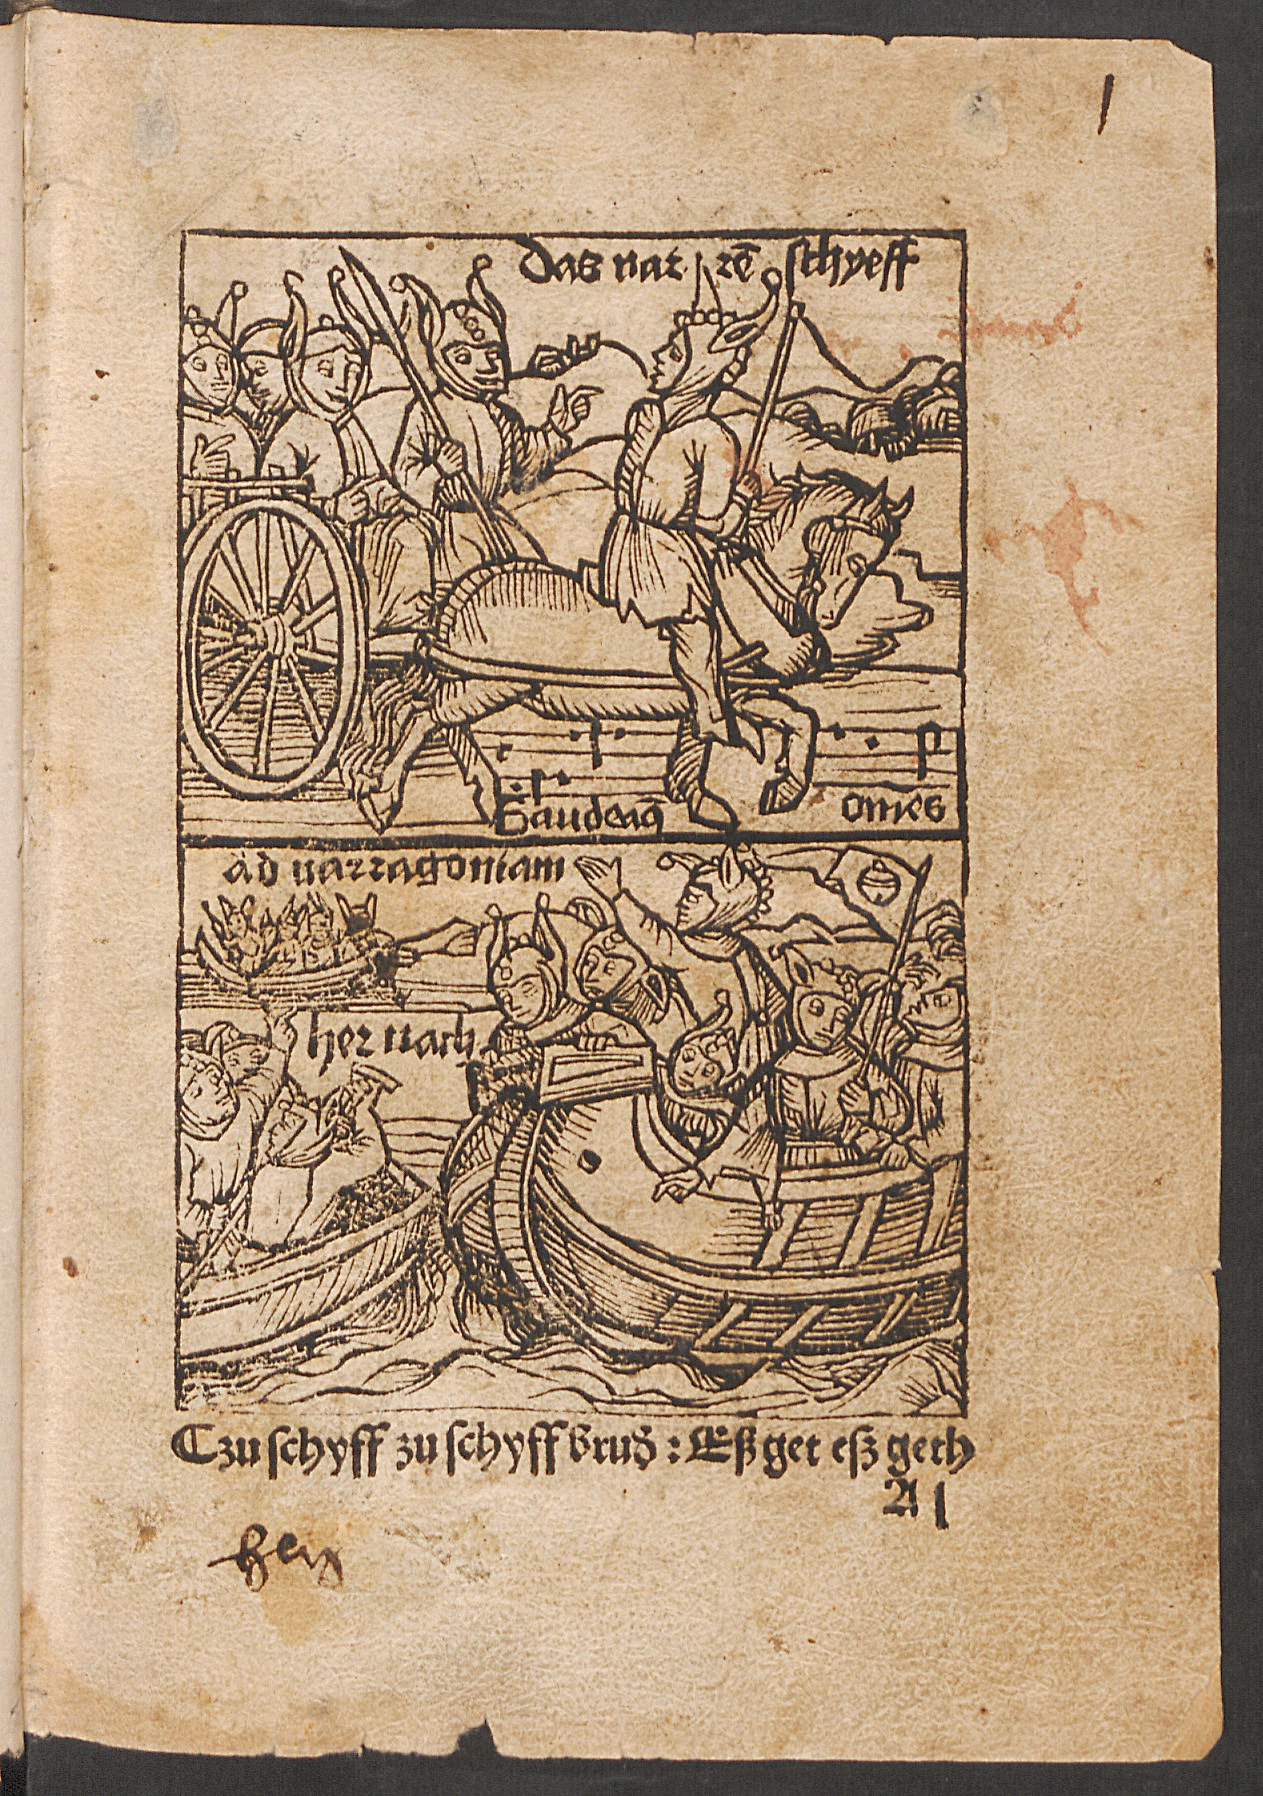 1
das nar rē schyeff
Gaudeaꝰ omēs
ad narragoniam
her nach
Czu schyff zu schyff brud̕ : Eß get eſz geth
A 1